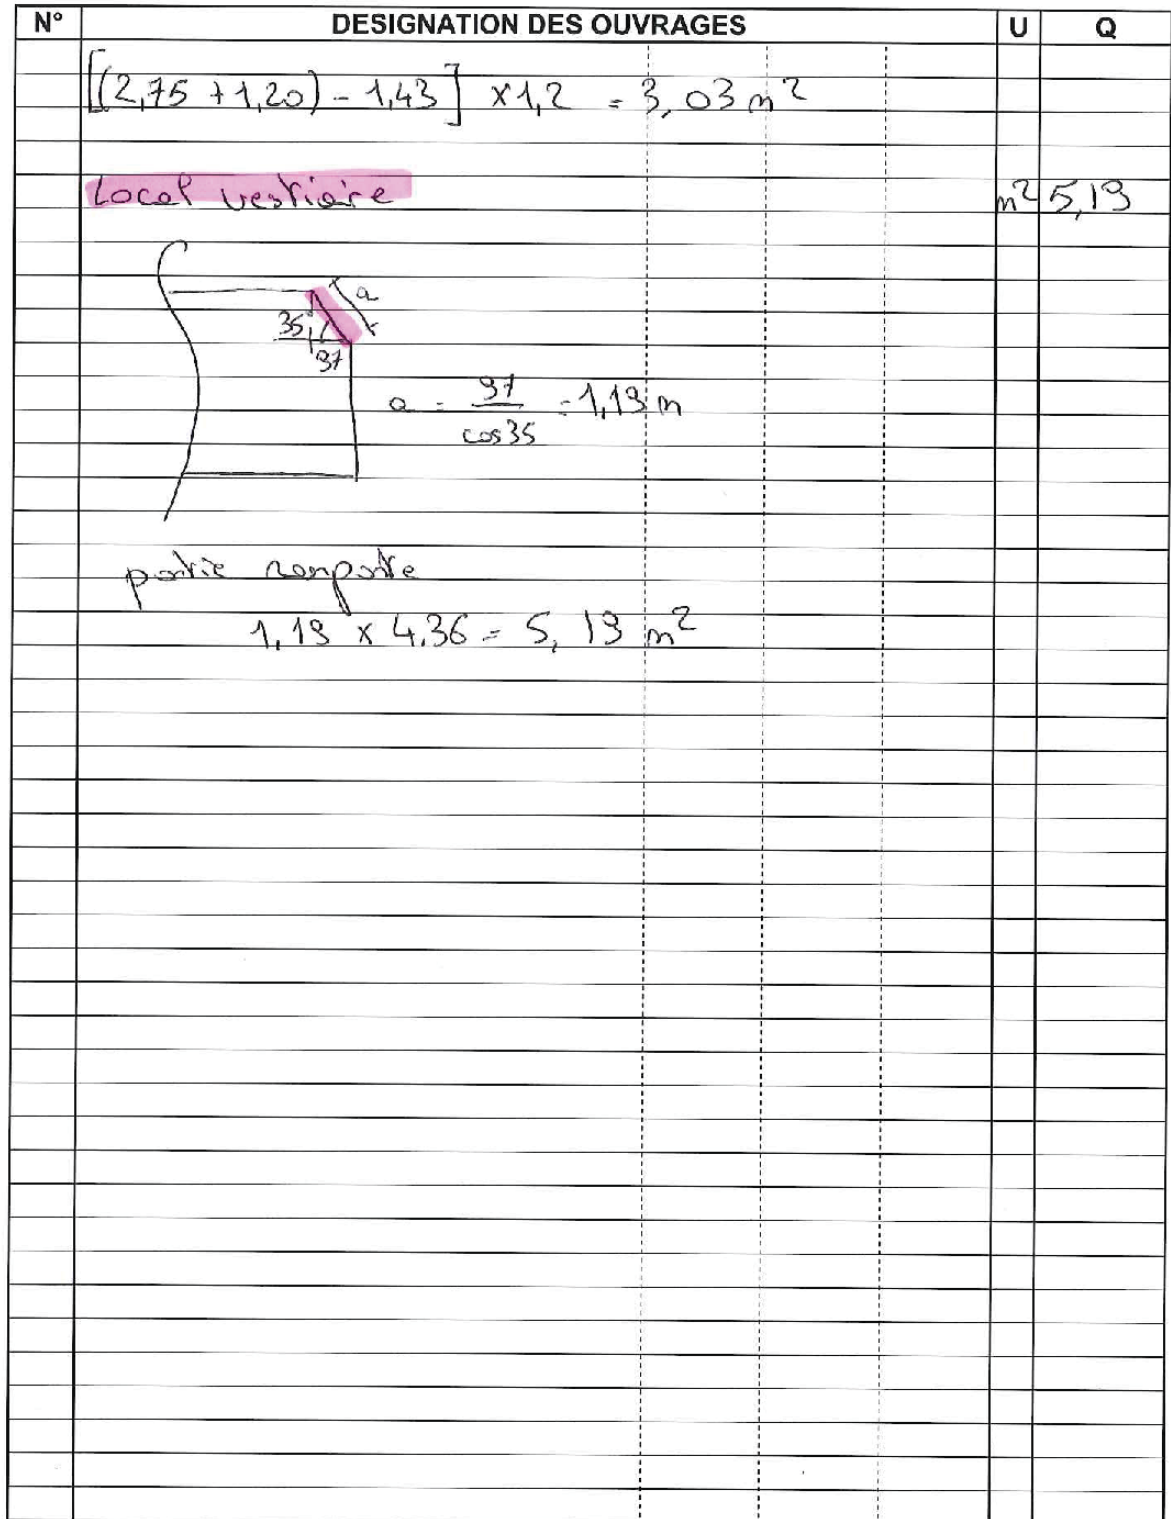 N° DESIGNATION DES OUVRAGES U Q
[(2,75 + 1,20) - 1,43] x 1,2 = 3,03 m²
Local vestiaire m² 5,19
a
35
97
a = 97 / cos 35 = 1,19 m
partie rampante
1,19 x 4,36 = 5,19 m²